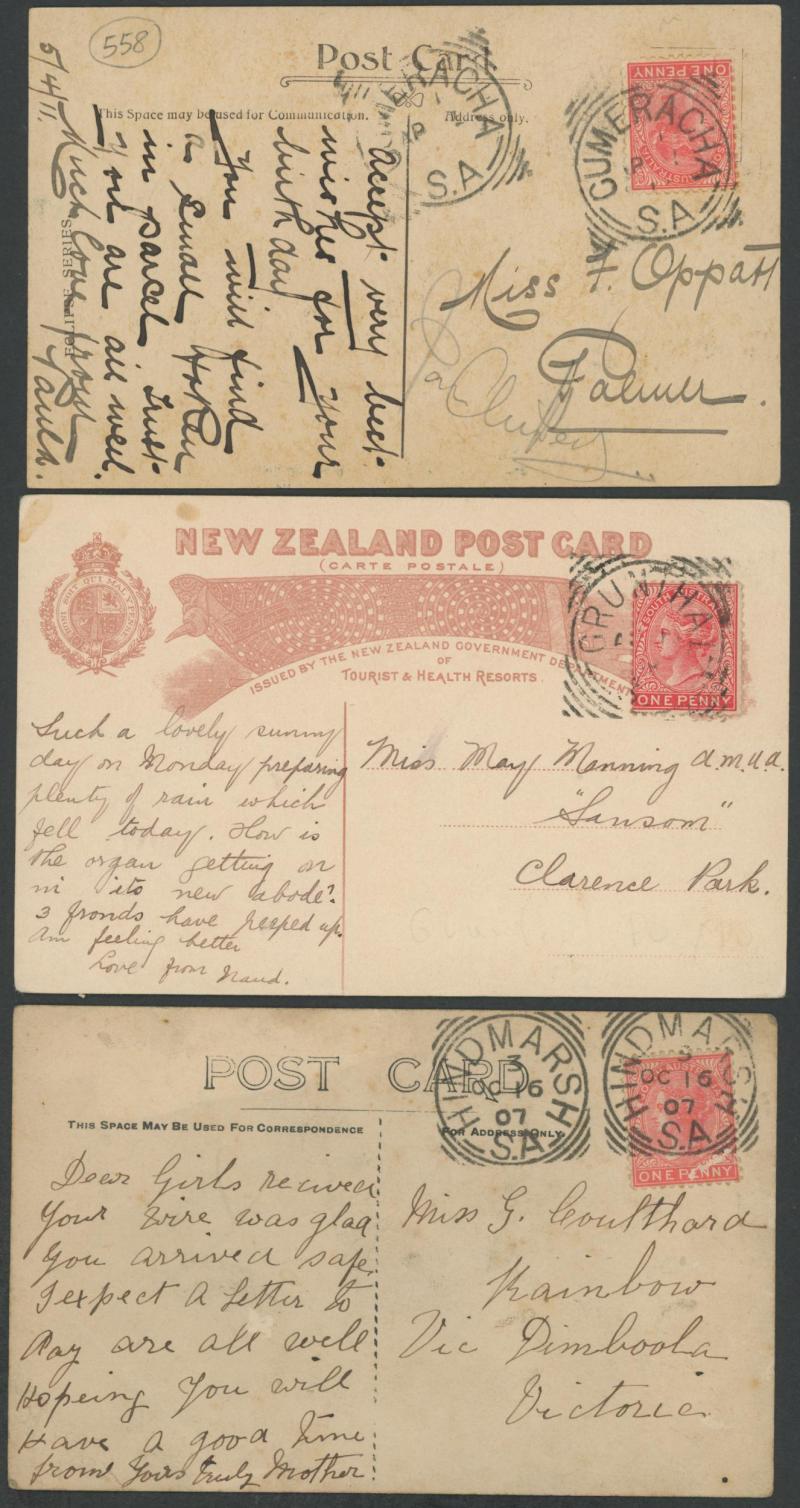 558
Post Card
This Space may be used for Communication.
Address only.
ECLIPSE SERIES
GUMERACHA
S.A
ONE PENNY
SOUTH AUSTRALIA
GUMERACHA
S.A
5/4/11.
Accept very best
wishes for your
birthday
You will find
a small token
in parcel. Trust
you are all well.
Much love from
Miss F. Oppatt
Palmer.
NEW ZEALAND POST CARD
(CARTE POSTALE)
HONI SOIT QUI MAL Y PENSE
ISSUED BY THE NEW ZEALAND GOVERNMENT DEPARTMENT
OF
TOURIST & HEALTH RESORTS.
GRUNTHAL
SOUTH AUSTRALIA
ONE PENNY
Such a lovely sunny
day on Monday preparing
plenty of rain which
fell today. How is
the organ getting on
in its new abode?
3 fronds have peeped up.
Am feeling better
Love from Maud.
Miss May Manning a.m.u.a.
"Sansom"
Clarence Park.
POST CARD
THIS SPACE MAY BE USED FOR CORRESPONDENCE
FOR ADDRESS ONLY.
HINDMARSH
3
OC 16
07
S.A
HINDMARSH
3
OC 16
07
S.A
ONE PENNY
Dear Girls recived
Your wire was glad
you arrived safe
I expect a letter to
day are all well
Hopeing you will
Have a good time
from Yours truly Mother
Miss G. Coulthard
Rainbow
Via Dimboola
Victoria